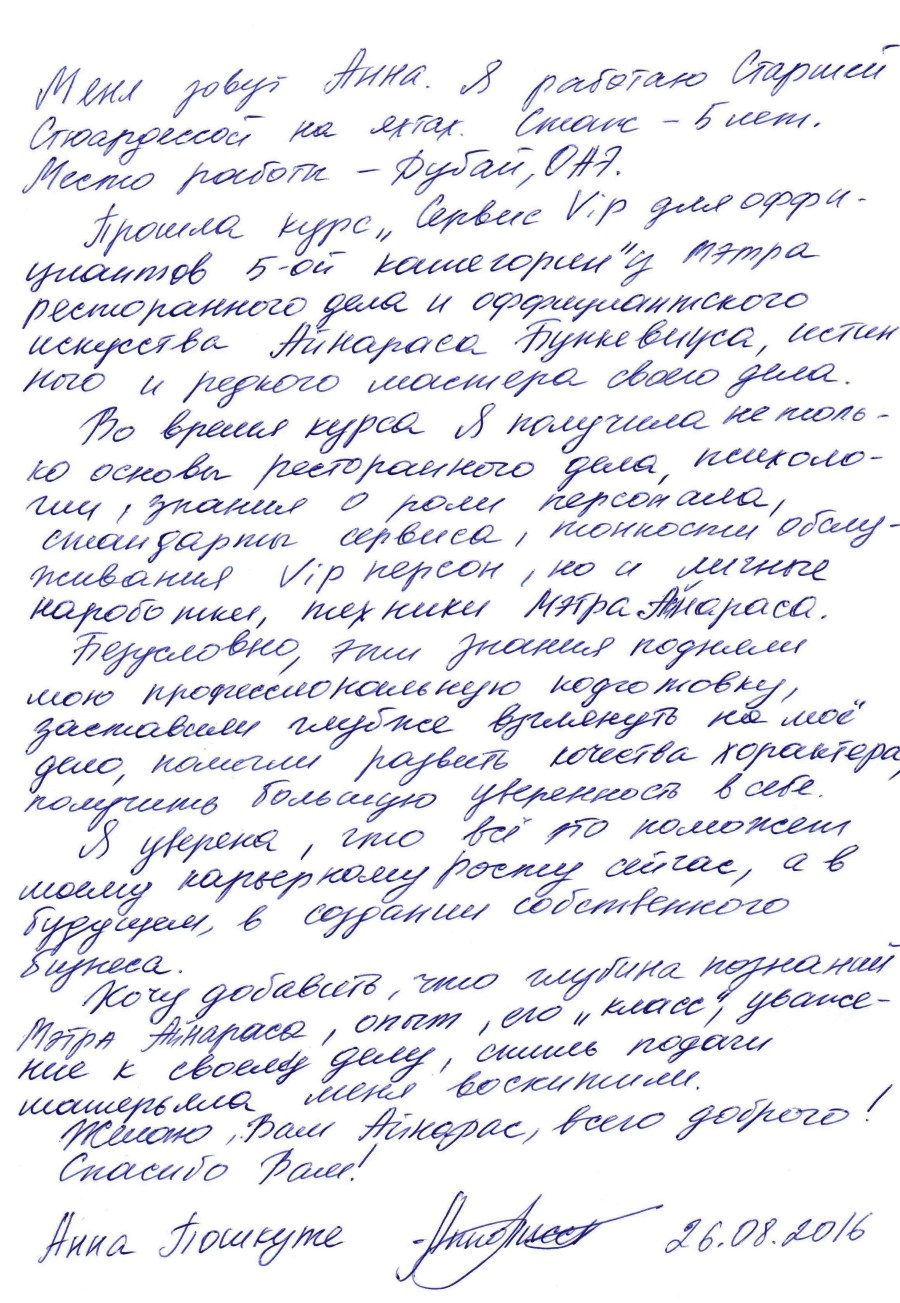 Меня зовут Анна. Я работаю Старшей
Стюардессой на яхтах. Стаж – 5 лет.
Место работы – Дубай, ОАЭ.
Прошла курс „Сервис Vip для оффи-
циантов 5-ой категории" у Мэтра
ресторанного дела и оффициантского
искусства Айнараса Бункевичуса, истин
ного и редкого мастера своего дела.
Во время курса Я получила не толь-
ко основы ресторанного дела, психоло-
гии, знания о роли персонала,
стандарты сервиса, тонкости обслу-
живания Vip персон, но и личные
наработки, техники Мэтра Айнараса.
Безусловно, эти знания подняли
мою профессиональную подготовку,
заставили глубже взглянуть на моё
дело, помогли развить качества характера,
получить большую уверенность в себе.
Я уверена, что всё это поможет
моему карьерному росту сейчас, а в
будущем, в создании собственного
бизнеса.
Хочу добавить, что глубина познаний
Мэтра Айнараса, опыт, его „класс", уваже-
ние к своему делу, стиль подачи
матерьяла меня восхитили.
Желаю, Вам Айнарас, всего доброго!
Спасибо Вам!
Анна Пошкуте 26.08.2016